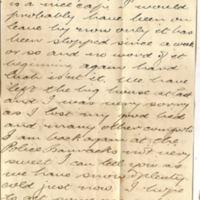 is a nice cafe. I would
probably have been on
leave by now only it has
been stopped since a week
or so and no word of it
beginning again hard
luck is it. We have
left the big house at last
and I was very sorry
as I lost my good bed
and many other comforts
I am back again at the
Police Barracks not very
sweet I can tell you as
we have snow & plenty
cold just now. I hope
to get some